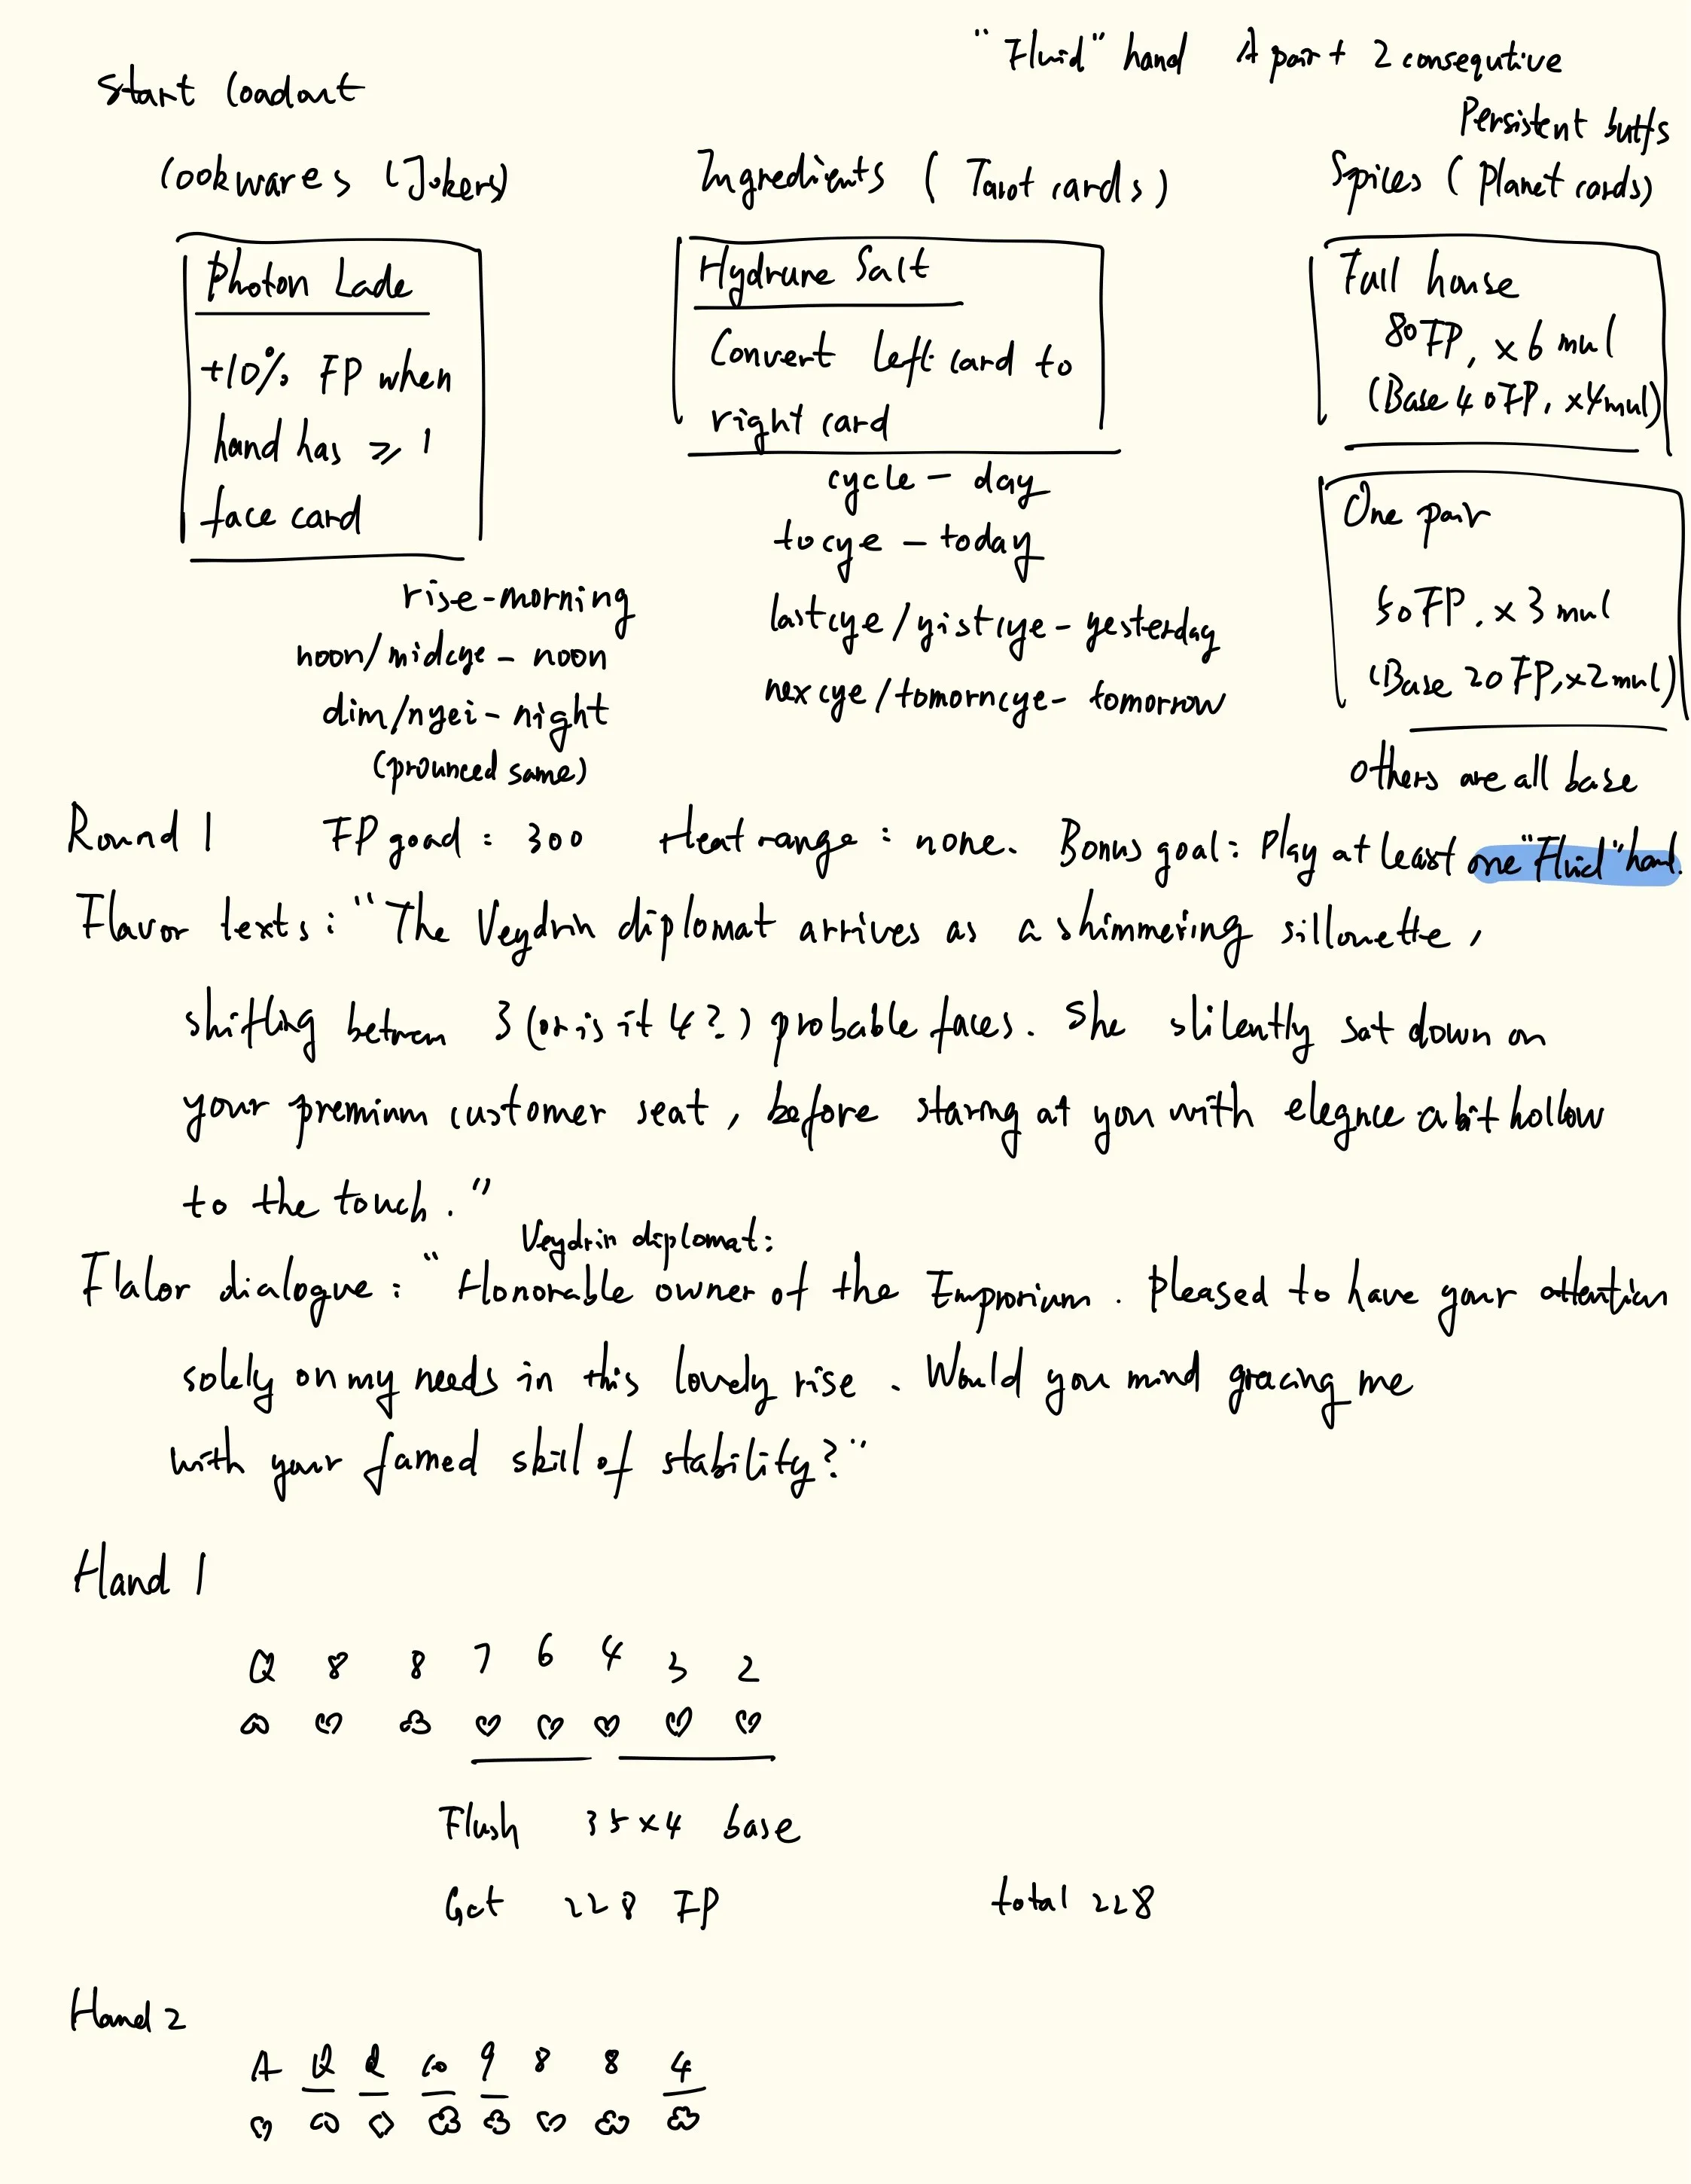 "Fluid" hand A pair + 2 consequtive
Start loadout
Persistent buffs
Cookwares (Jokers)
Ingredients (Tarot cards)
Spices (Planet cards)
Photon Lade
+10% FP when
hand has ⩾ 1
face card
Hydrune Salt
Convert left card to
right card
Full house
80FP, x6 mul
(Base 40FP, x4mul)
One pair
50FP, x3 mul
(Base 20FP, x2mul)
others are all base
cycle - day
tocye - today
lastcye/yistcye - yesterday
nexcye/tomorncye - tomorrow
rise-morning
noon/midcye - noon
dim/nyei - night
(prounced same)
Round 1 FP goad : 300 Heat range : none. Bonus goal: Play at least one "Fluid" hand.
Flavor texts : "The Veydrin diplomat arrives as a shimmering sillouette,
shifting between 3 (or is it 4?) probable faces. She slilently sat down on
your premium customer seat, before staring at you with elegnce a bit hollow
to the touch."
Veydrin diplomat:
Flalor dialogue : "Honorable owner of the Emprorium. Pleased to have your attention
solely on my needs in this lovely rise. Would you mind gracing me
with your famed skill of stability?"
Hand 1
Q 8 8 7 6 4 3 2
♤ ♡ ♧ ♡ ♡ ♡ ♡ ♡
Flush 35x4 base
Get 228 FP total 228
Hand 2
A Q Q 10 9 8 8 4
♡ ♤ ♢ ♧ ♧ ♡ ♧ ♧